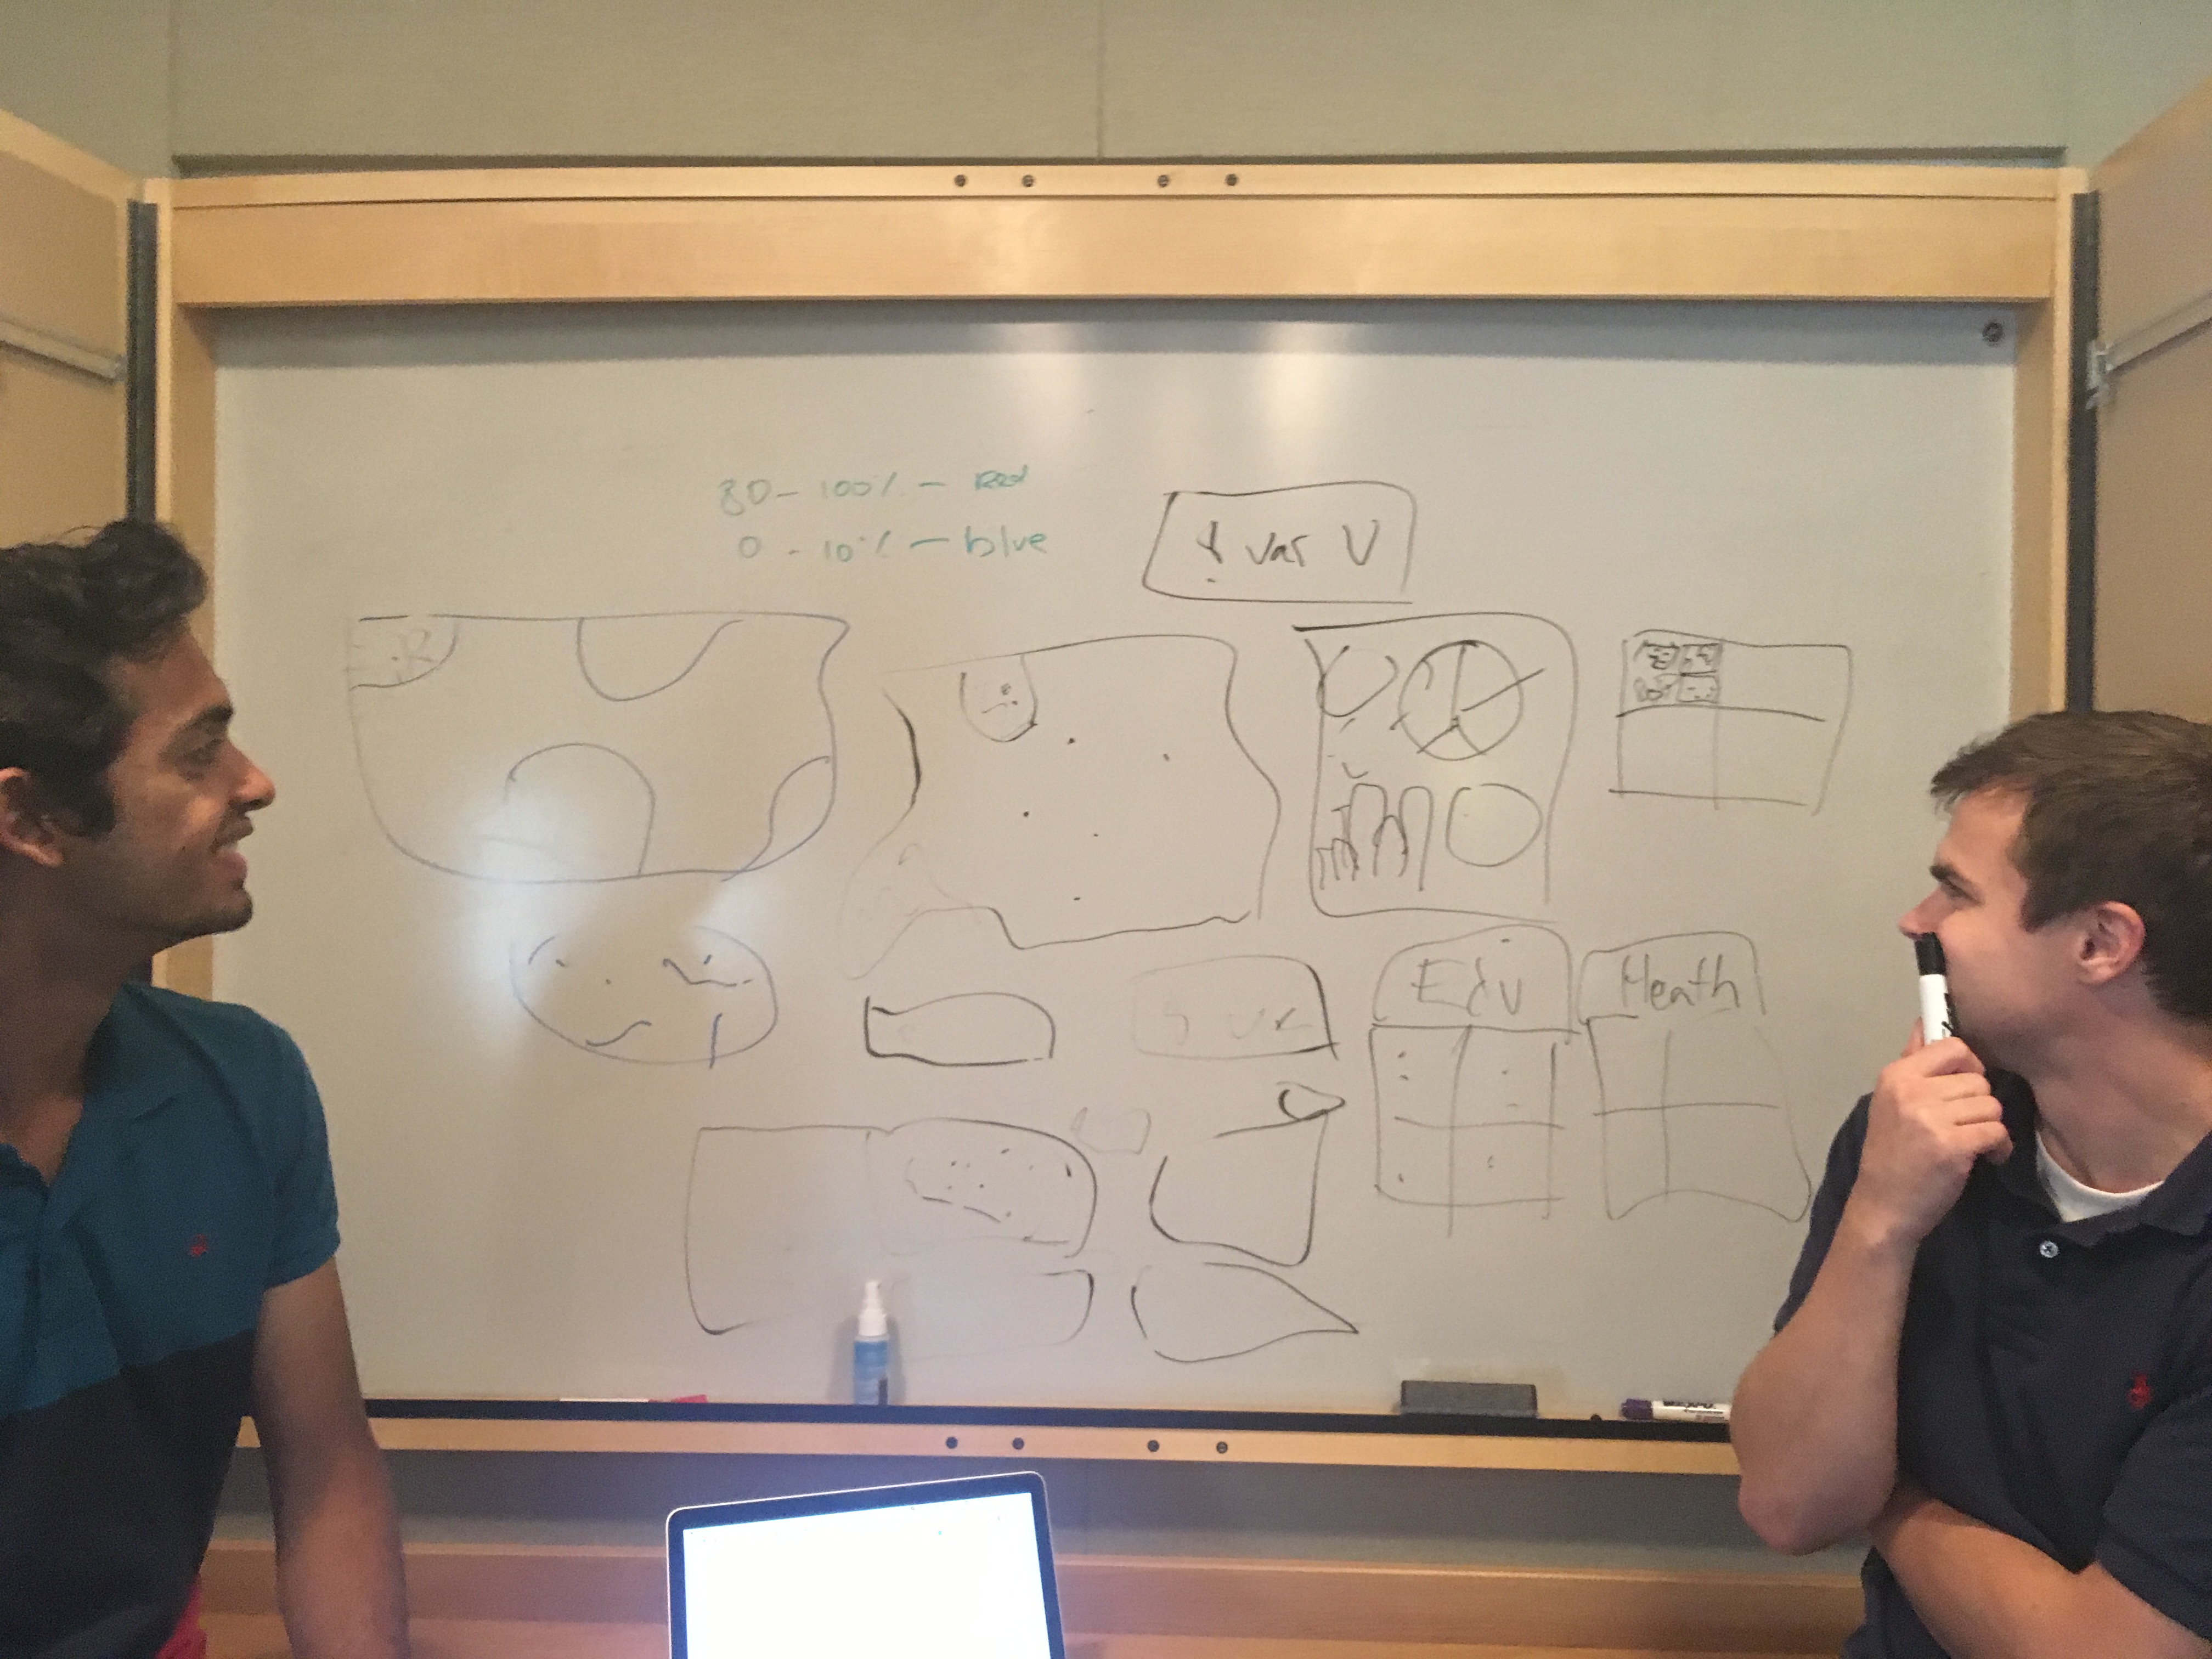 80 - 100% - Red
0 - 10% - blue
$ var V
Edu
Heath